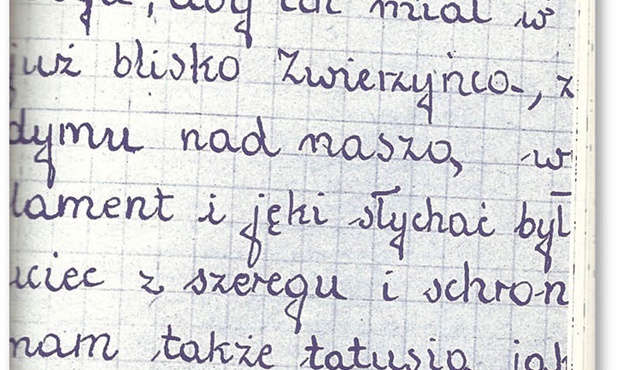 aby tak miał w
już blisko Zwierzyńca, z
dymu nad naszą w
lament i jęki słychać był
uciec z szeregu i schron
nam także tatusia jak